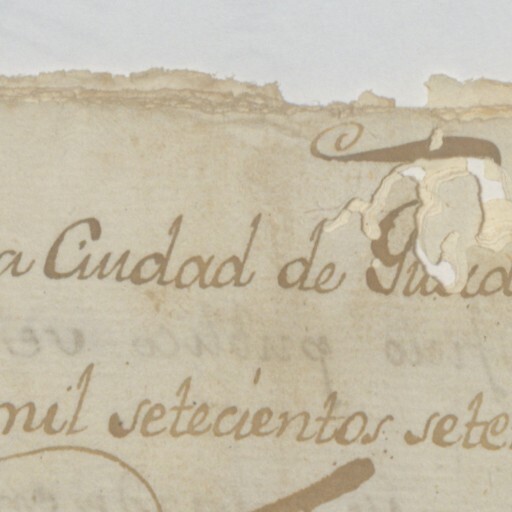 a Ciudad de Guad
mil setecientos sete